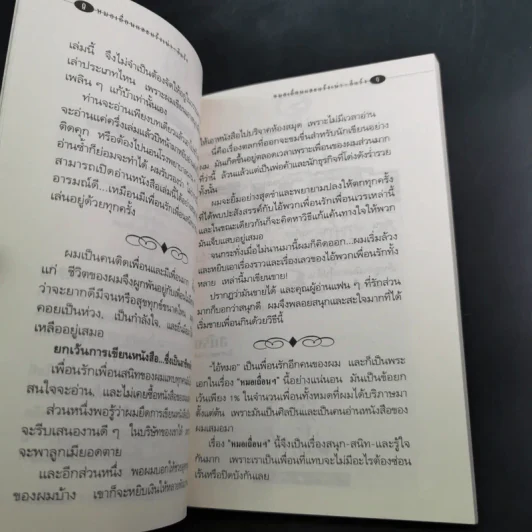 เล่มนี้ จึงไม่จำเป็นต้องจัดให้
เล่าประเภทไหน เพราะผมเขียน
เพลิน ๆ แก้บ้าเท่านั้นเอง
ท่านจะอ่านเพียงบทเดียวแล้ว
จะอ่านแค่ครึ่งเล่มแล้วปิดหน้า
ติดคุก หรือต้องไปนอนโรงพยาบาล
อ่านซ้ำก็ย่อมจะทำได้ ผมรับรอง
สามารถเปิดอ่านหนังสือเล่มนี้ได้
อารมณ์ดี...เหมือนมีเพื่อน
เล่นอยู่ด้วยทุกครั้ง
ผมเป็นคนติดเพื่อนและมีเพื่อน
แก่ ชีวิตของผมจึงผูกพันอยู่กับเพื่อน
ว่าจะยากดีมีจนหรือสุขทุกข์ขนาดไหน
คอยเป็นห่วง, เป็นกำลังใจ, และ
เหลืออยู่เสมอ
ยกเว้นการเขียนหนังสือ...ซึ่งเป็นอาชีพ
เพื่อนรักเพื่อนสนิทของผมแทบทุกคน
สนใจจะอ่าน, และไม่เคยซื้อหนังสือของ
ส่วนหนึ่งพอรู้ว่าผมยึดการเขียนหนังสือ
จะรีบเสนองานดี ๆ ในบริษัทของเขาให้
จะพาลูกเมียอดตาย
และอีกส่วนหนึ่ง พอผมบอกให้ช่วย
ของผมบ้าง เขาก็จะหยิบเงินให้
ให้เอาหนังสือไปบริจาคห้องสมุด เพราะไม่มีเวลาอ่าน
นี่คือเรื่องตลกที่ออกจะขมขื่นสำหรับนักเขียนอย่าง
ผม มันเกิดขึ้นอยู่ตลอดเวลาเพราะเพื่อนของผมส่วนมาก
ที่ว่านี้ ล้วนแล้วแต่เป็นพ่อค้าและนักธุรกิจที่โด่งดังร่ำรวย
ทั้งนั้น
ผมจะยิ้มอย่างสุดซ่าและพยายามปลงให้ตกทุกครั้ง
ที่ได้พบปะสังสรรค์กับไอ้พวกเพื่อนรักเพื่อนเวรเหล่านี้
และในขณะเดียวกันก็จะคิดหาวิธีแก้แค้นทางใจให้พวก
มันเจ็บแสบอยู่เสมอ
จนกระทั่งเมื่อไม่นานมานี้ผมก็คิดออก...ผมเริ่มล้วง
และหยิบเอาเรื่องราวและเรื่องเลวของไอ้พวกเพื่อนรักทั้ง
หลาย เหล่านี้มาเขียนขาย!
ปรากฏว่ามันขายได้ และคุณผู้อ่านแฟน ๆ ที่รักส่วน
มากก็บอกว่าสนุกดี ผมจึงพลอยสนุกและสะใจมากที่ได้
เริ่มขายเพื่อนกินด้วยวิธีนี้
"ไอ้หมอ" เป็นเพื่อนรักอีกคนของผม และก็เป็นพระ
เอกในเรื่อง "หมอเถื่อนฯ" นี้อย่างแน่นอน มันเป็นข้อยก
เว้นเพียง 1% ในจำนวนเพื่อนทั้งหมดที่ผมได้บริภาษมา
ตั้งแต่ต้น เพราะมันเป็นศิลปินและเป็นคนอ่านหนังสือของ
ผมเสมอมา
เรื่อง "หมอเถื่อนฯ" นี้จึงเป็นเรื่องสนุก-สนิท-และรู้ใจ
กันมาก เพราะเราเป็นเพื่อนที่แทบจะไม่มีอะไรต้องซ่อน
เร้นหรือปิดบังกันเลย